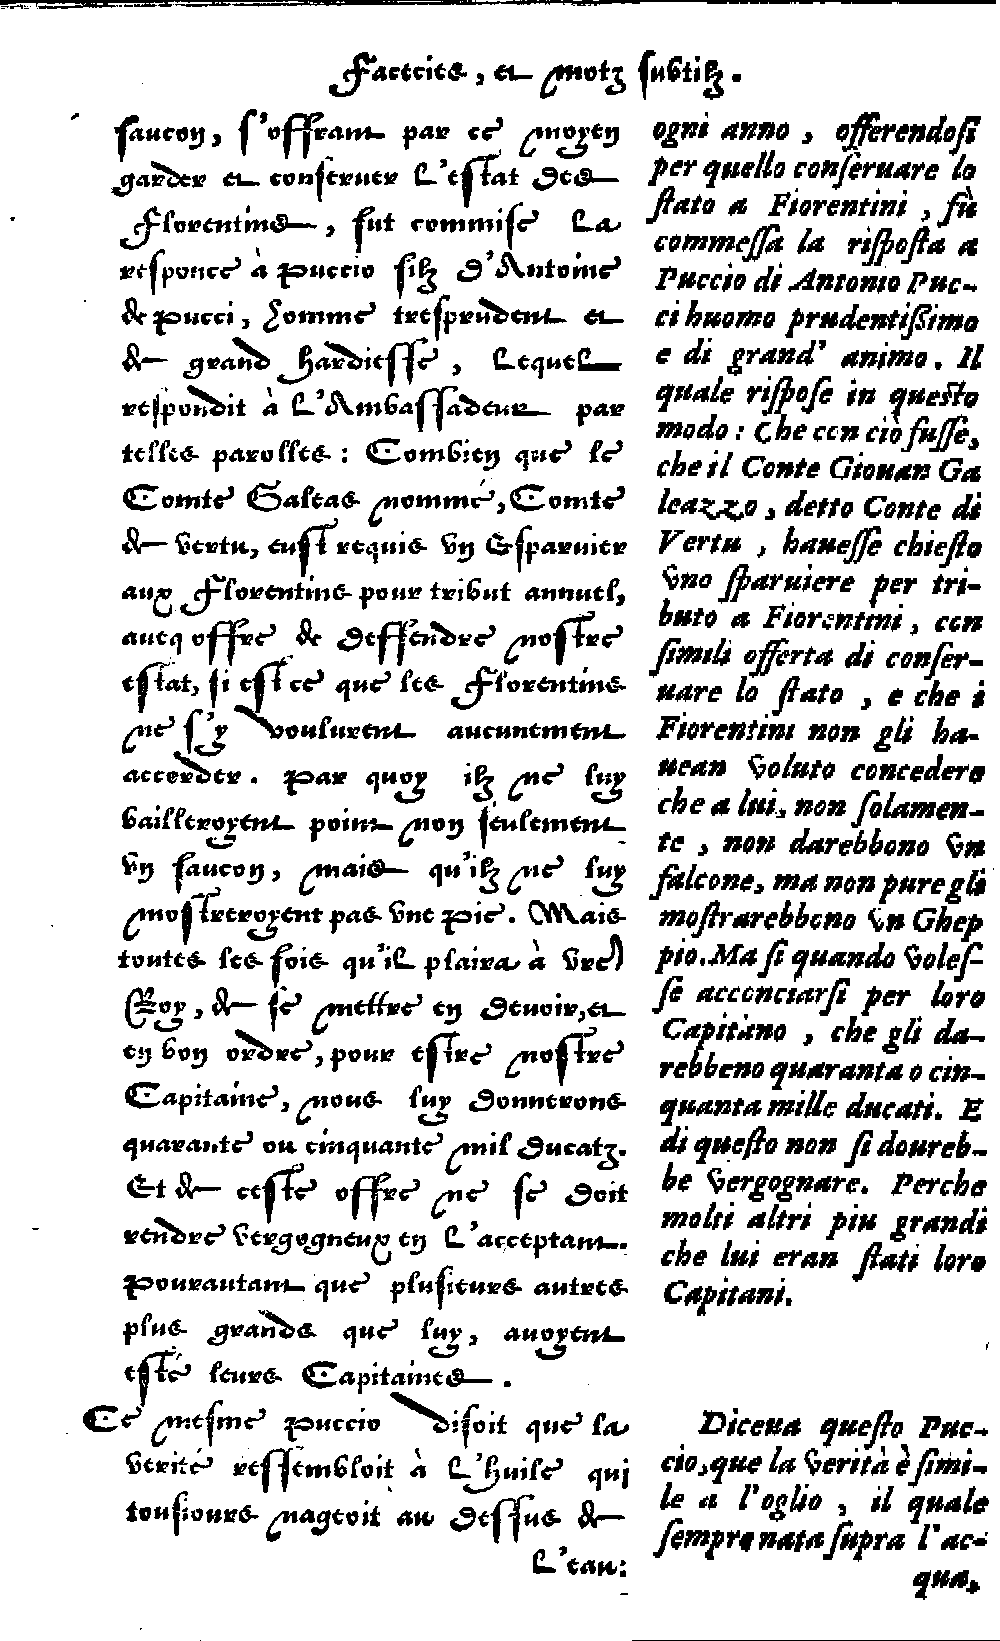 Faceties, et motz subtilz.
faucon, s'offrant par ce moyen
garder et conseruer l'estat des
Florentins, fut commise la
responce à Puccio filz d'Antoine
de Pucci, homme tresprudent et
de grand hardiesse, lequel
respondit à l'Ambassadeur par
telles parolles: Combien que le
Comte Galeas nommé, Comte
de vertu, eust requis vn Esparuier
aux Florentins pour tribut annuel,
auecq offre de deffendre nostre
estat, si est ce que les Florentins
ne s'y voulurent aucunement
accorder. Par quoy ilz ne luy
bailleroyent point non seulement
vn faucon, mais qu'ilz ne luy
mostreroyent pas vne Pie. Mais
toutes les fois qu'il plaira à vre
Roy, de se mettre en deuoir, et
en bon ordre, pour estre nostre
Capitaine, nous luy donnerons
quarante ou cinquante mil ducatz.
Et de ceste offre ne se doit
rendre vergogneux en l'acceptant.
Pourautant que plusieurs autres
plus grands que luy, auoyent
esté leurs Capitaines.
Ce mesme Puccio disoit que la
verité ressembloit à l'huile qui
tousiours nageoit au dessus de
l'eau:
ogni anno, offerendosi
per quello conseruare lo
stato a Fiorentini, fù
commessa la risposta a
Puccio di Antonio Puc-
ci huomo prudentißimo
e di grand' animo. Il
quale rispose in questo
modo: Che con ciò fusse,
che il Conte Giouan Ga
leazzo, detto Conte di
Vertu, hauesse chiesto
vno sparuiere per tri-
buto a Fiorentini, con
simili offerta di conser-
uare lo stato, e che i
Fiorentini non gli ha-
uean voluto concedere
che a lui, non solamen-
te, non darebbono vn
falcone, ma non pure gli
mostrarebbeno vn Ghep
pio. Ma si quando voles-
se acconciarsi per loro
Capitano, che gli da-
rebbeno quaranta o cin-
quanta mille ducati. E
di questo non si doureb-
be vergognare. Perche
molti altri piu grandi
che lui eran stati loro
Capitani.
Diceua questo Puc-
cio, que la verità è simi-
le a l'oglio, il quale
sempre nata supra l'ac-
qua,